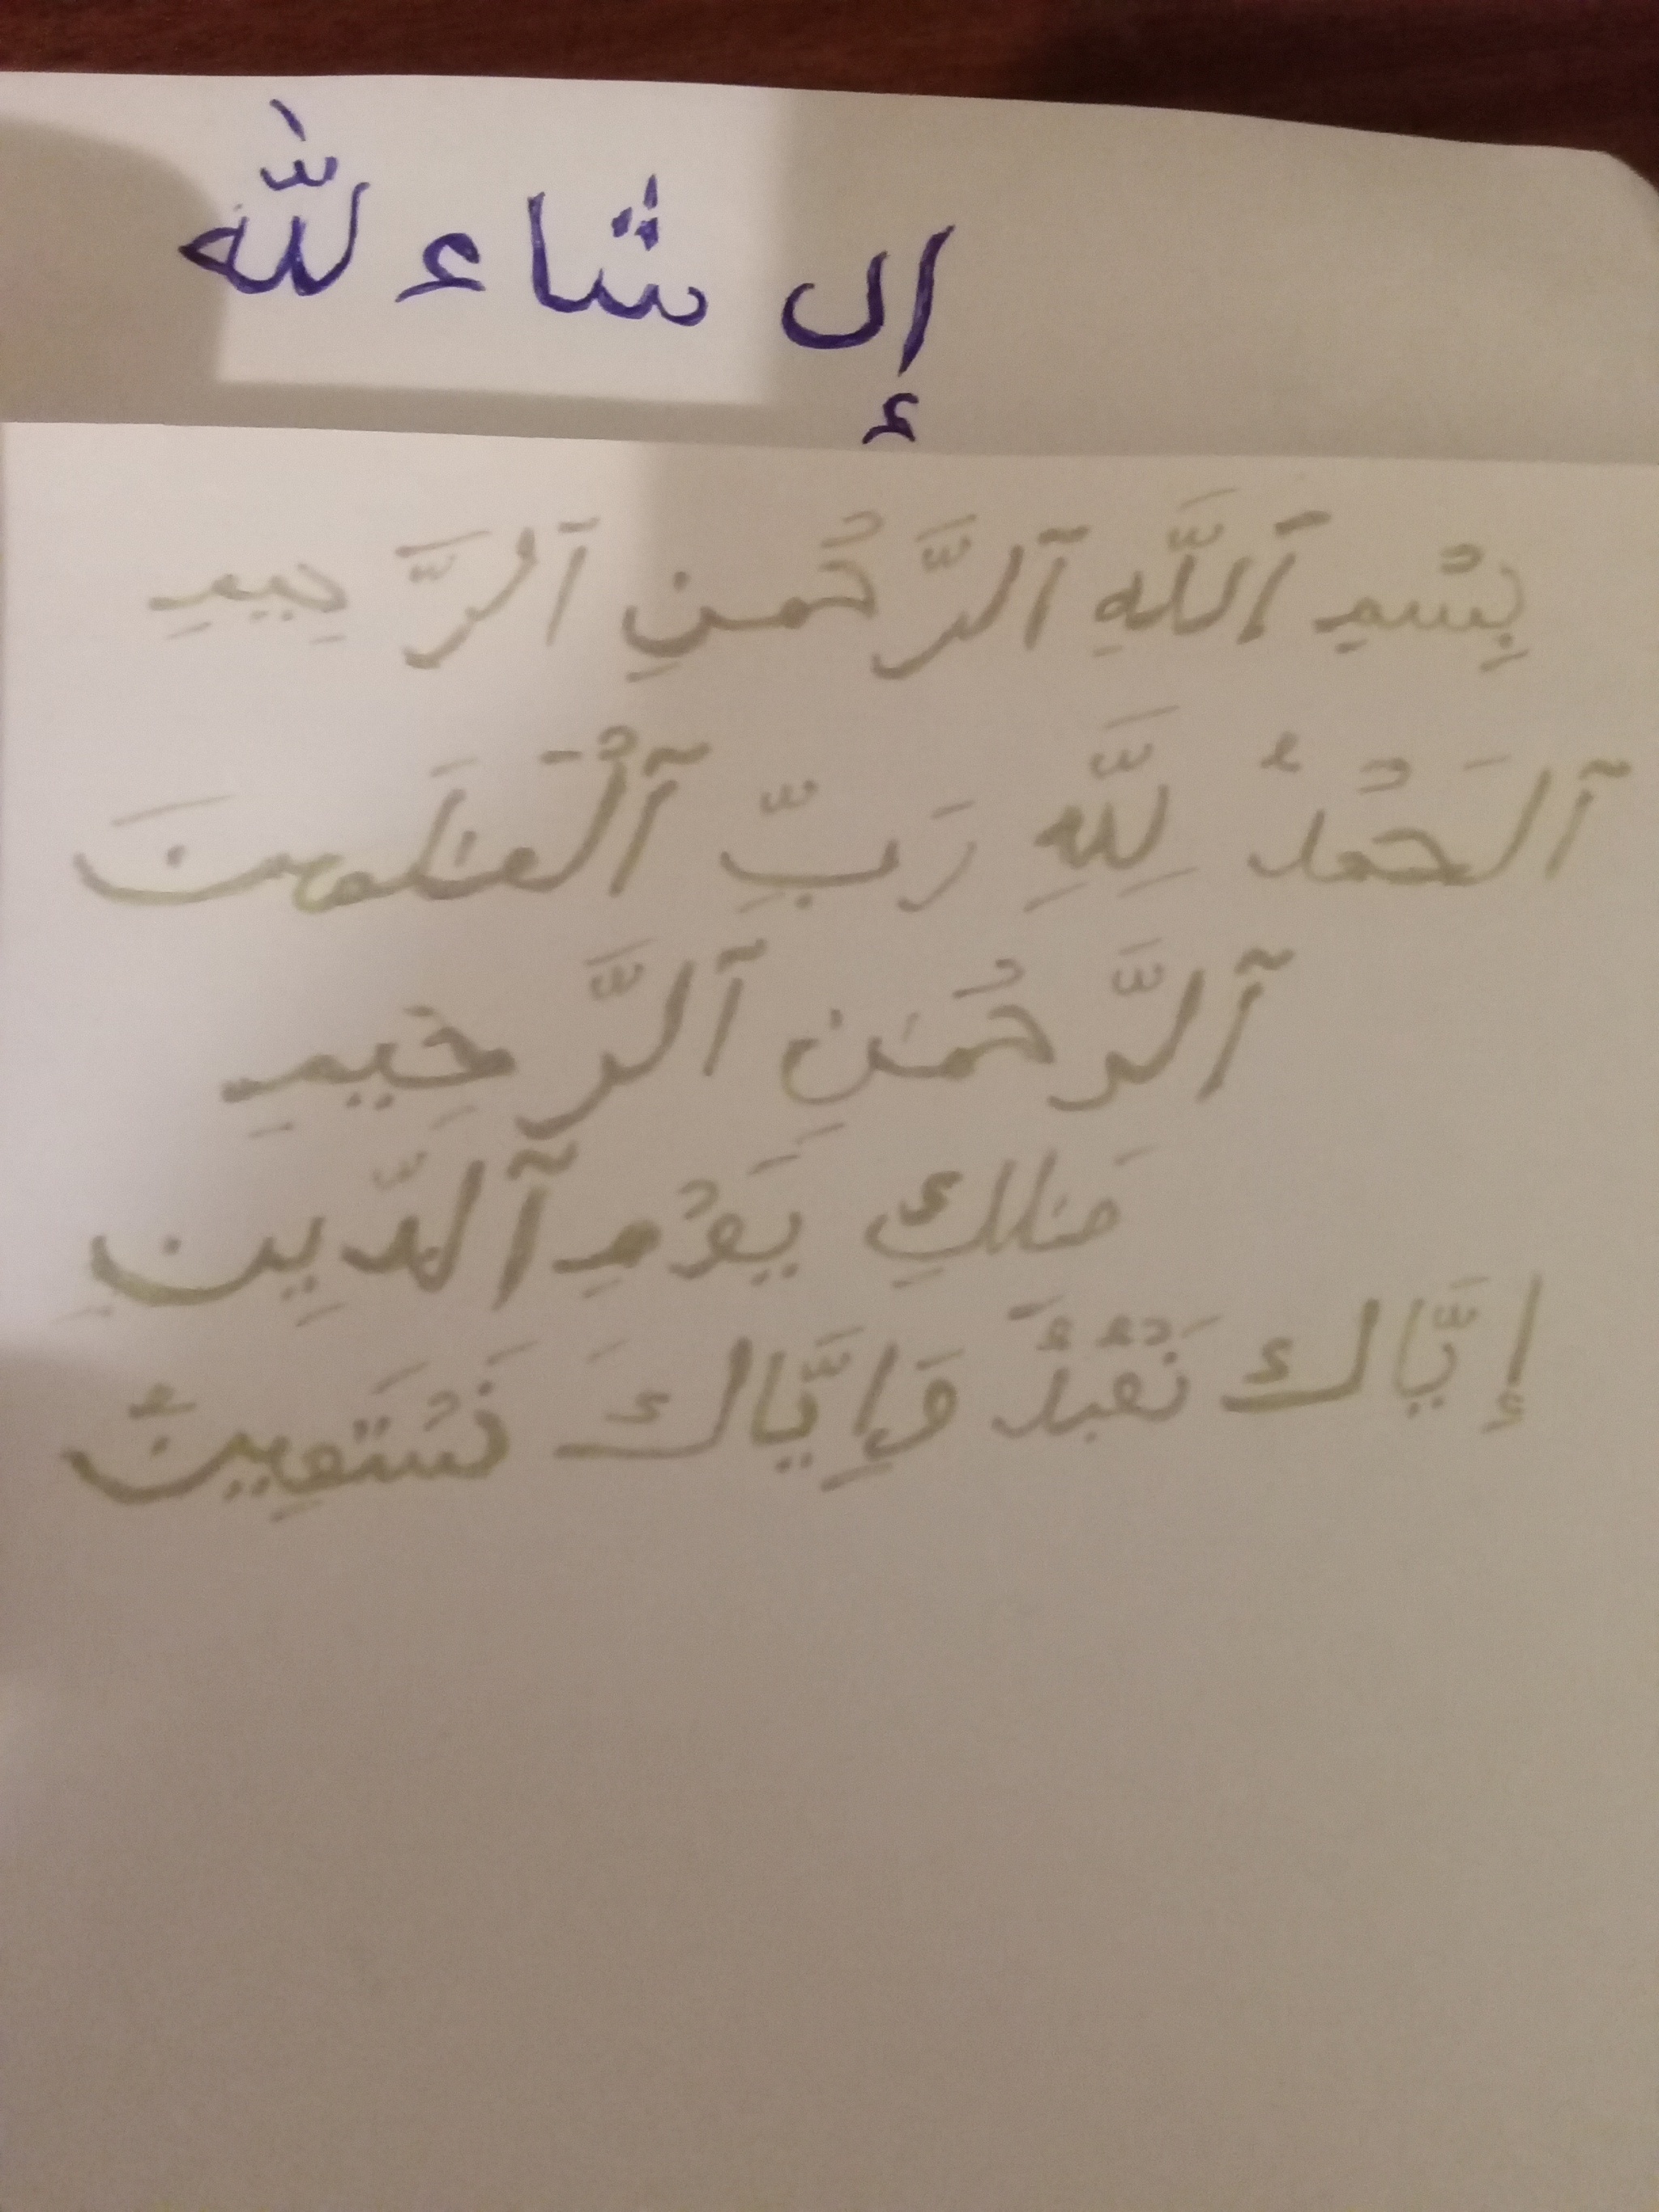 إں شاء لله
بِسْمِ ٱللَّهِ ٱلرَّحْمنِ ٱلرَّحِيمِ
ٱلَحْمدُ لِلَّهِ رَبِّ ٱلْعَٰلَمينَ
ٱلرَّحْمَٰنِ ٱلرَّخِيمِ
مَٰلكِ يَوْمِ ٱلدِّينِ
إيَّاك نَعْبُدُ وَإِيَّاكَ نَسْتَعِينُ